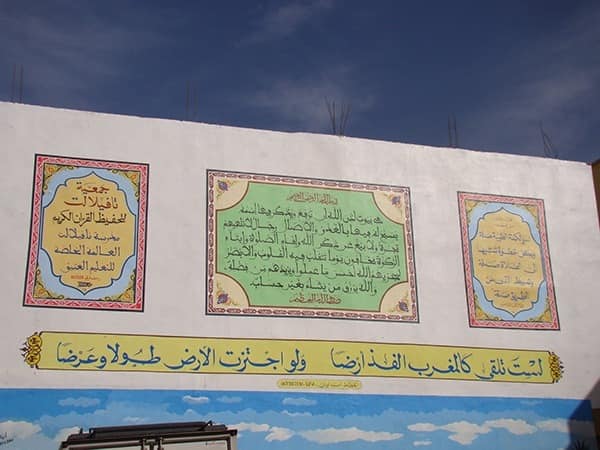 جمعية
تافيلالت
لتحفيظ القرءان الكريم
مدرسة تافيلالت
العالمة الخاصة
للتعليم العتيق
بسم الله الرحمن الرحيم
في بيوت اذن الله أن ترفع ويذكر فيها اسمه
يسبح له فيها بالغدو والاصال رجال لا تلهيهم
تجارة ولا بيع عن ذكر الله وإقام الصلوة وإيتاء
الزكوة يخافون يوما تتقلب فيه القلوب والابصر
ليجزيهم الله أحسن ما عملوا ويزيدهم من فضله
والله يرزق من يشاء بغير حساب
صدق الله العظيم
لست تلقى كالمغرب الفذ أرضا ولو اجتزت الأرض طولا وعرضا